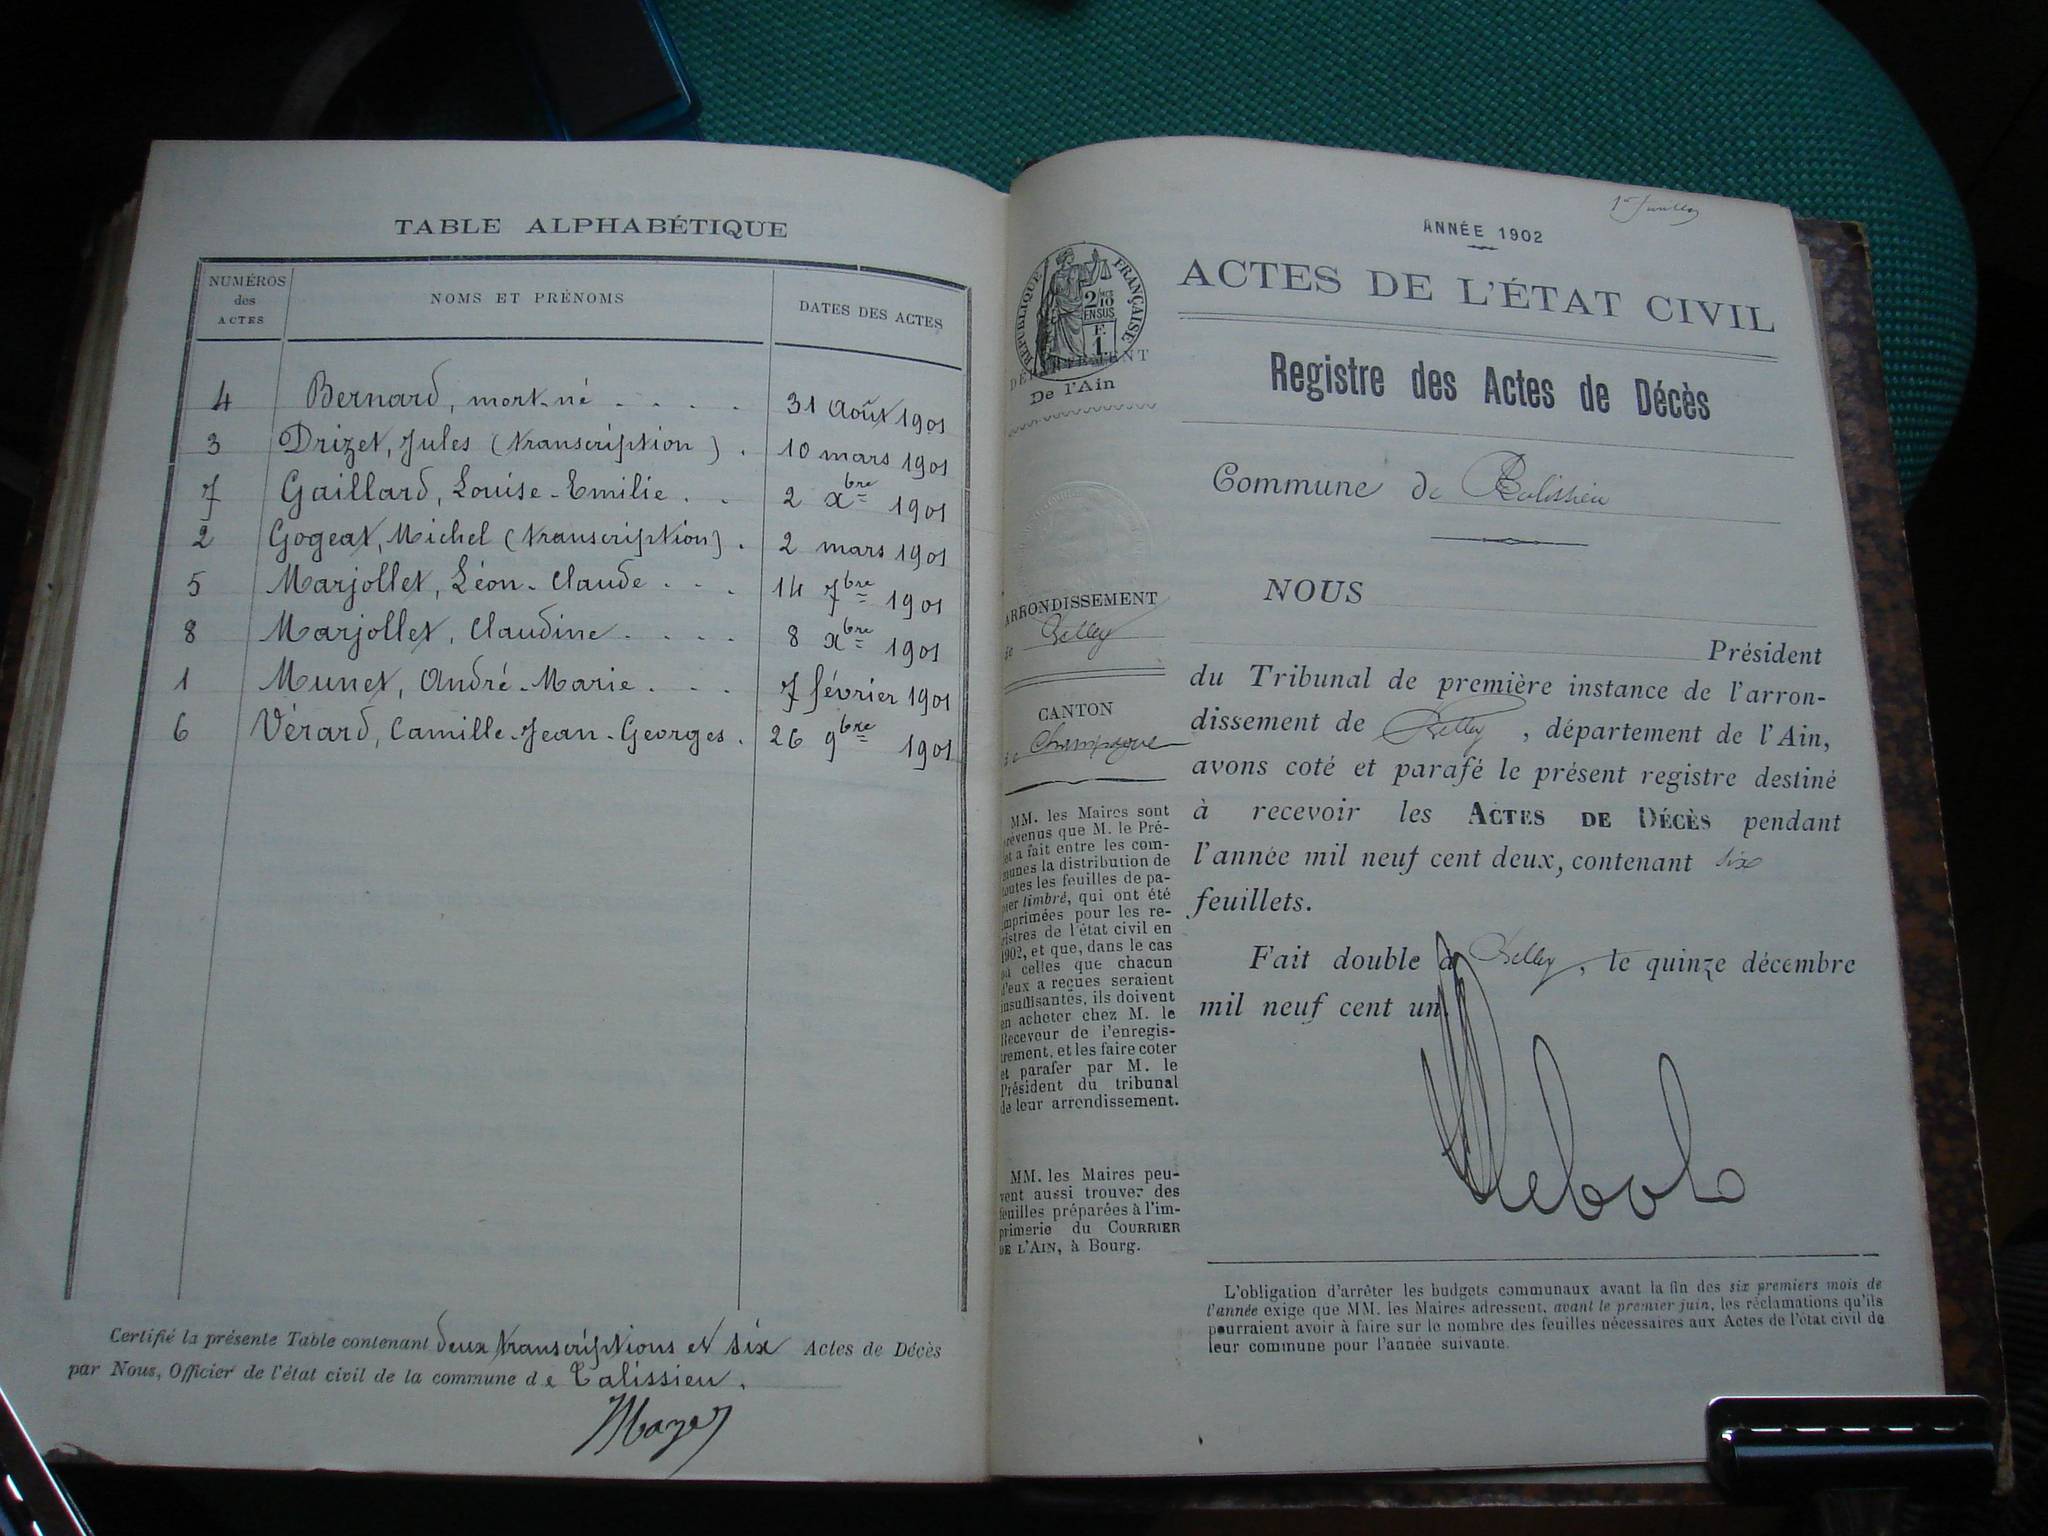 TABLE ALPHABÉTIQUE
NUMÉROS
des
ACTES
NOMS ET PRÉNOMS
DATES DES ACTES
4 Bernard, mort-né . . . . 31 Août 1901
3 Drizet, Jules (transcription) . 10 mars 1901
7 Gaillard, Louise-Emilie . . 2 xbre 1901
2 Gogeat, Michel (transcription) . 2 mars 1901
5 Marjollet, Léon-Claude . . . 14 7bre 1901
8 Marjollet, Claudine . . . . 8 xbre 1901
1 Munet, André-Marie . . . 7 février 1901
6 Vérard, Camille-Jean-Georges . 26 9bre 1901
Certifié la présente Table contenant deux transcriptions et six Actes de Décès
par Nous, Officier de l'état civil de la commune de Talissieu.
ANNÉE 1902
ACTES DE L'ÉTAT CIVIL
RÉPUBLIQUE FRANÇAISE
2/10
EN SUS
F.
1.
DÉPARTEMENT
De l'Ain
Registre des Actes de Décès
Commune de Talissieu
ARRONDISSEMENT
de Belley
CANTON
de Champagne
MM. les Maires sont
prévenus que M. le Pré-
fet a fait entre les com-
munes la distribution de
toutes les feuilles de pa-
pier timbré, qui ont été
imprimées pour les re-
gistres de l'état civil en
1902, et que, dans le cas
où celles que chacun
d'eux a reçues seraient
insuffisantes, ils doivent
en acheter chez M. le
Receveur de l'enregis-
trement, et les faire coter
et parafer par M. le
Président du tribunal
de leur arrondissement.
MM. les Maires peu-
vent aussi trouver des
feuilles préparées à l'im-
primerie du COURRIER
DE L'AIN, à Bourg.
NOUS
Président
du Tribunal de première instance de l'arron-
dissement de Belley, département de l'Ain,
avons coté et parafé le présent registre destiné
à recevoir les ACTES DE DÉCÈS pendant
l'année mil neuf cent deux, contenant six
feuillets.
Fait double à Belley, le quinze décembre
mil neuf cent un.
L'obligation d'arrêter les budgets communaux avant la fin des six premiers mois de
l'année exige que MM. les Maires adressent, avant le premier juin, les réclamations qu'ils
pourraient avoir à faire sur le nombre des feuilles nécessaires aux Actes de l'état civil de
leur commune pour l'année suivante.